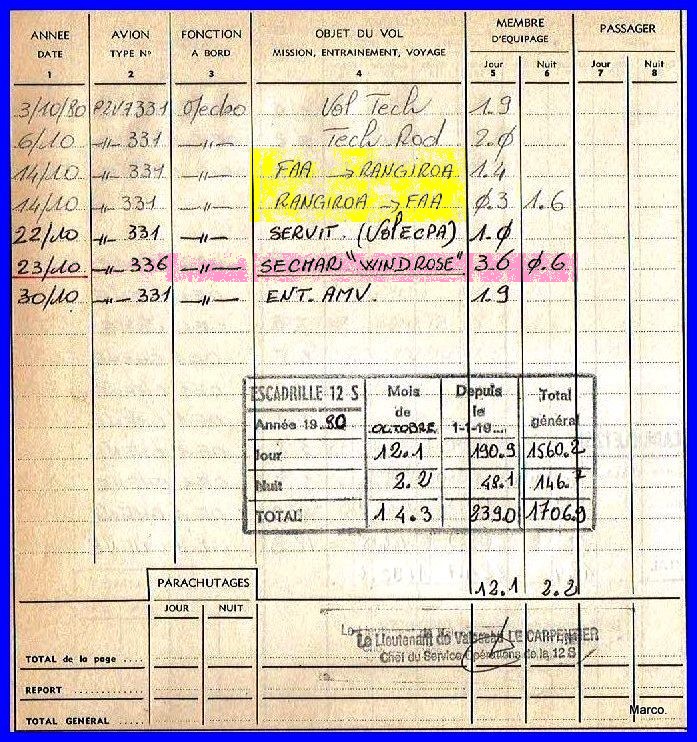 ANNEE DATE 1 AVION TYPE N° 2 FONCTION A BORD 3 OBJET DU VOL MISSION, ENTRAINEMENT, VOYAGE 4 MEMBRE D'EQUIPAGE Jour 5 Nuit 6 PASSAGER Jour 7 Nuit 8
3/10/80 P2V7331 Vol Tech 1.9
6/10 -"- 331 -"- Tech Rod 2.0
14/10 -"- 331 -"- FAA → RANGIROA 1.4
14/10 -"- 331 -"- RANGIROA → FAA 0.3 1.6
22/10 -"- 331 -"- SERVIT. (Vol ECPA) 1.0
23/10 -"- 336 -"- SECMAR "WINDROSE" 3.6 0.6
30/10 -"- 331 -"- ENT. AMV. 1.9
ESCADRILLE 12 S Mois de OCTOBRE Depuis le 1-1-19.... Total général
Année 19 80
Jour 12.1 190.9 1560.2
Nuit 2.2 48.1 146.7
TOTAL 14.3 239.0 1706.9
12.1 2.2
PARACHUTAGES
JOUR NUIT
Le Lieutenant de Vaisseau LE CARPENTIER
Chef du Service Opérations de la 12 S
TOTAL de la page ....
REPORT ........
TOTAL GENERAL ......
Marco.